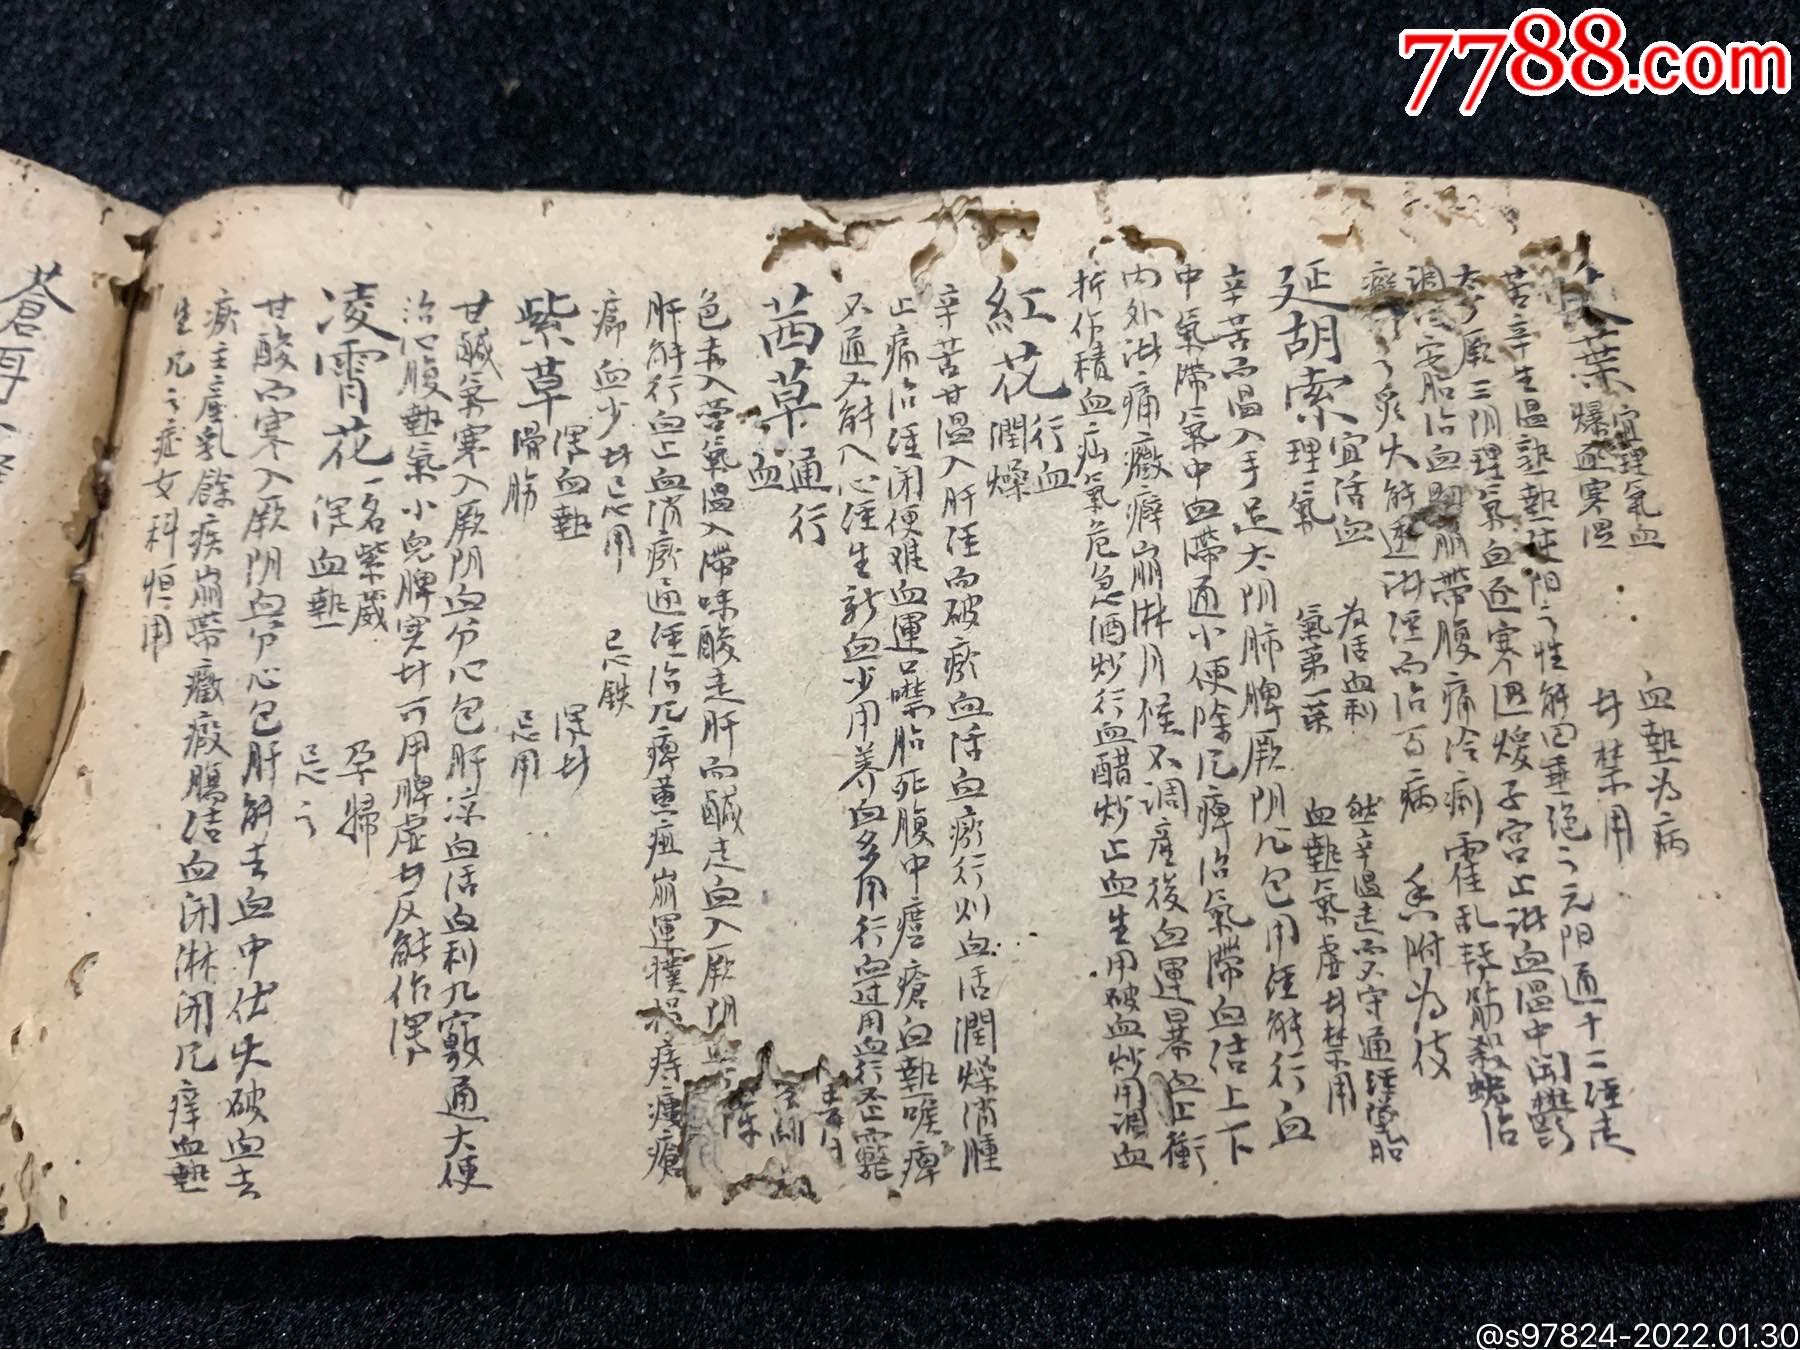 7788.com
葉 宜理氣血
爆逐寒湿
血熱为病
廿禁用
苦辛生温熟熱純阳之性能回垂绝之元阳通十二経走
厥三阴理氣血逐寒湿煖子宫止諸血温中闭鬱
调 安胎治血 崩带腹痛冷痢霍乱轉筋殺蛔治
癬 之炙火能透諸経而治百病 香附为使
延胡索 宜活血
理氣
为活血利
氣第一薬
然辛温走而不守通経墮胎
血熱氣虚廿禁用
辛苦而温入手足太阴肺脾厥阴心包用経能行血
中氣滯氣中血滯通小便除凡痺治氣滯血结上下
内外諸痛癥癖崩淋月候不调産後血運暴血上衝
折伤積血疝氣危急酒炒行血醋炒止血生用破血炒用调血
紅花 行血
潤燥
辛苦甘温入肝経而破瘀血活血瘀行則血活潤燥消腫
止痛治経闭便难血運口噤胎死腹中痘瘡血熱喉痺
不通又能入心経生新血少用养血多用行血过用血行不止
茜草 通行
血
色赤入营氣温入滯味酸走肝而鹹走血入厥阴
肝能行血止血消瘀通経治凡痺黄疸崩運撲损痔瘻瘡
癤血少廿忌用 忌铁
紫草 潔血熱
滑肠
潔廿
忌用
甘鹹氣寒入厥阴血分心包肝凉血活血利九竅通大便
治心腹熱氣小兒脾实廿可用脾虚廿反能作潔
凌霄花 一名紫葳
潔血熱
孕婦
忌之
甘酸而寒入厥阴血分心包肝能去血中伏火破血去
瘀主産乳餘疾崩带癥瘕腸结血闭淋闭凡痒血熱
生凡之症女科恒用
蒼耳
@s97824-2022.01.30